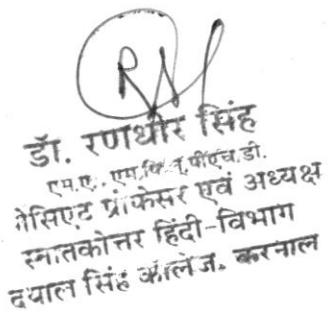 डॉ. रणधीर सिंह
एम.ए., एम.फिल, पीएच.डी.
ोसिएट प्रोफेसर एवं अध्यक्ष
स्नातकोत्तर हिंदी-विभाग
दयाल सिंह कॉलेज, करनाल